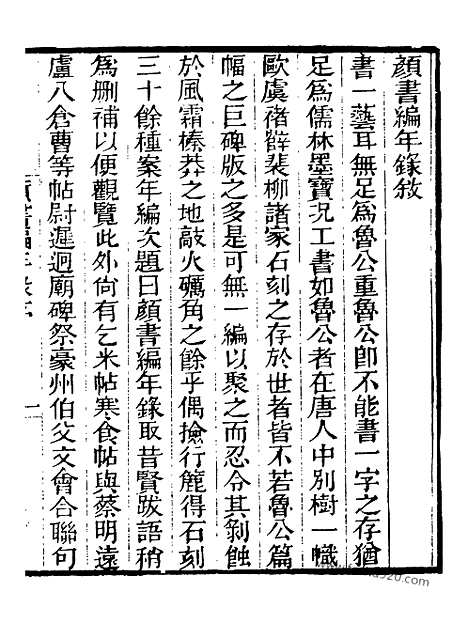 顏書編年錄敘
書一藝耳無足爲魯公重魯公卽不能書一字之存猶
足爲儒林墨寶況工書如魯公者在唐人中別樹一幟
歐虞褚薛裴柳諸家石刻之存於世者皆不若魯公篇
幅之巨碑版之多是可無一編以聚之而忍令其剝蝕
於風霜榛莽之地敲火礪角之餘乎偶撿行簏得石刻
三十餘種案年編次題曰顏書編年錄取昔賢跋語稍
爲刪補以便觀覽此外尙有乞米帖寒食帖與蔡明遠
盧八倉曹等帖尉遲迥廟碑祭豪州伯父文會合聯句
一